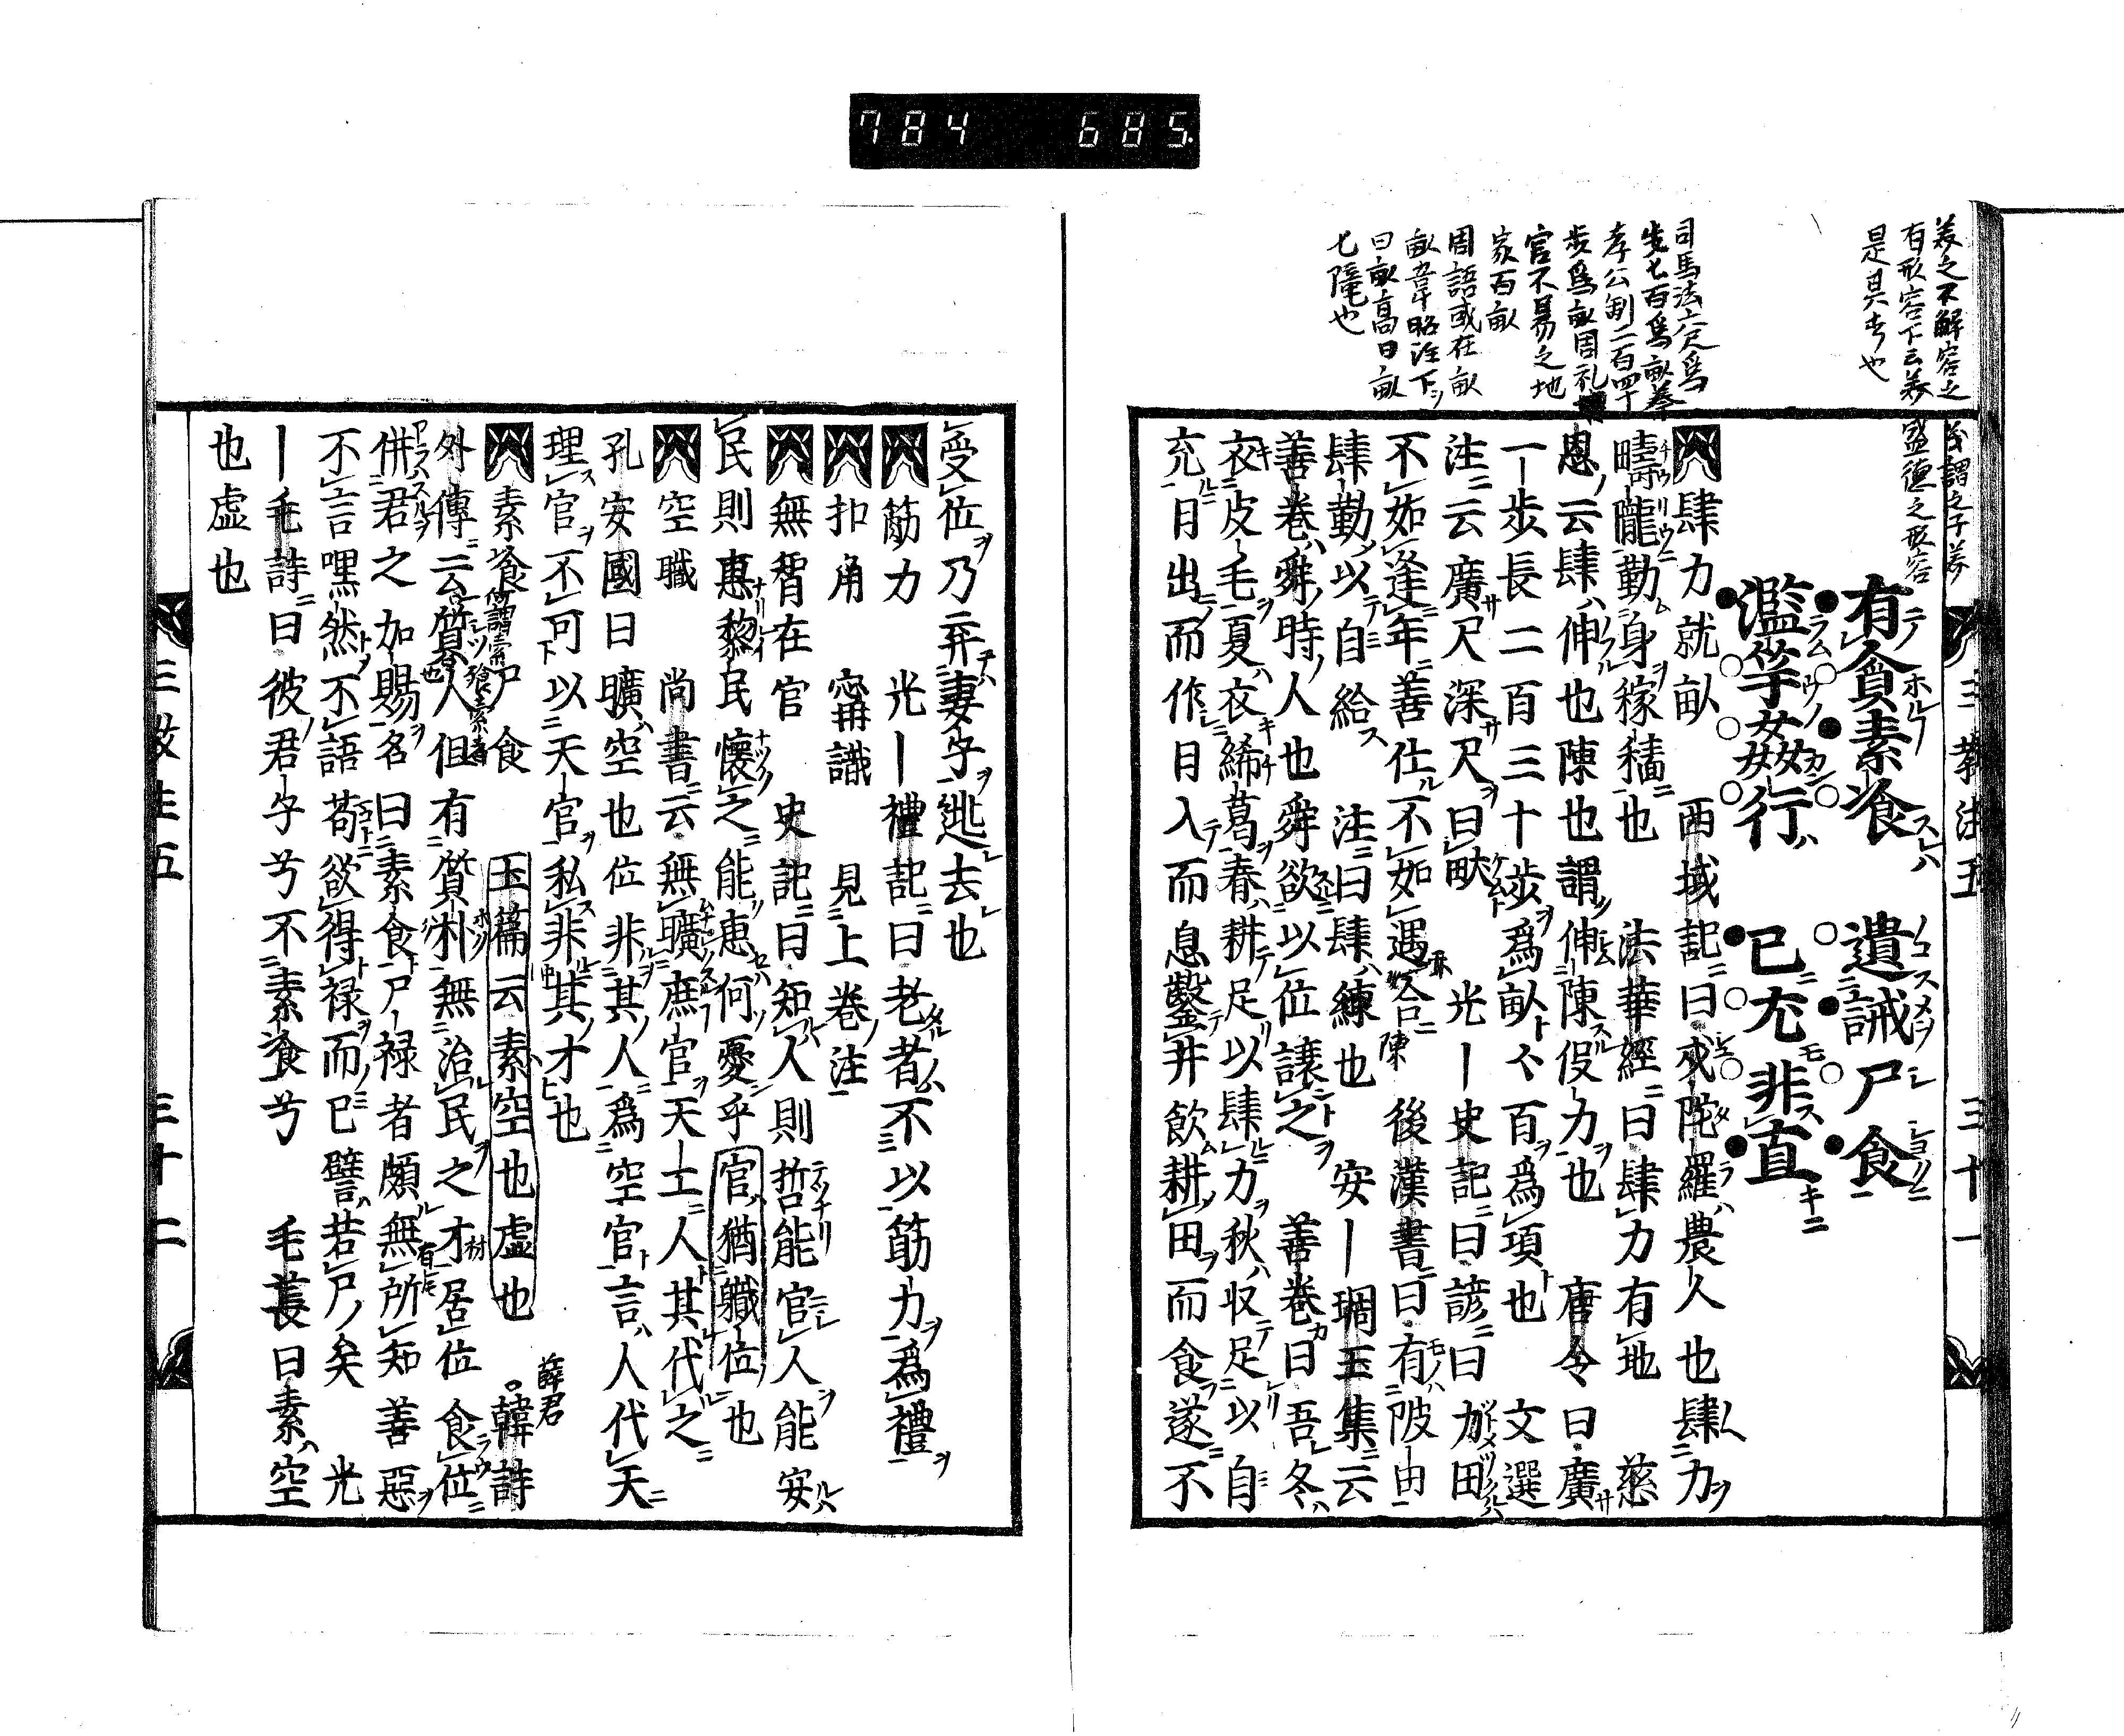 784 685
羙之不解容之
有形容下云羙
盛德之形容
是具書也
司馬法六尺爲
步七百爲畝秦
孝公制二百四十
步爲畝周礼
官不易之地
家百畝
周語或在畝
畝韋昭注下
曰畝高曰畝
七隴也
三教注五 三十一
有貪素飡 遺誡尸食
濫竽姦行 已宂非直
肆力就畝 西域記曰戍陀羅農人也肆力
疇隴勤身稼穡也 法華經曰肆力有地 慈
恩云肆伸也陳也謂伸陳役力也 唐令曰廣
一步長二百三十步爲畝々百爲項也 文選
注云廣尺深尺曰畎 光ー史記曰諺曰力田
不如逢年善仕不如遇合 後漢書曰有陂田
肆勤以自給 注曰肆練也 安ー琱玉集云
善卷舜時人也舜欲以位讓之 善卷曰吾冬
衣皮毛夏衣絺葛春耕足以肆力秋收足以自
充日出而作日入而息鑿井飲耕田而食遂不
受位乃弃妻子逃去也
筋力 光ー禮記曰老者不以筋力爲禮
扣角 甯識 見上卷注
無智在官 史記曰知人則哲能官人能安
民則惠黎民懷之能惠何憂乎官猶職位也
空職 尚書云無曠庶官天工人其代之
孔安國曰曠空也位非其人爲空官言人代天
理官不可以天官私非其才也
素飡尸食 玉篇云素空也虛也 韓詩
薛君
外傳云何謂素飡素者質人但有質朴無治民之才居位食位
併君之加賜名曰素食尸禄者頗無所知善惡
不言嘿然不語苟欲得禄而已譬若尸矣 光
ー毛詩曰彼君子兮不素飡兮 毛萇曰素空
也虛也
三教注五 三十二